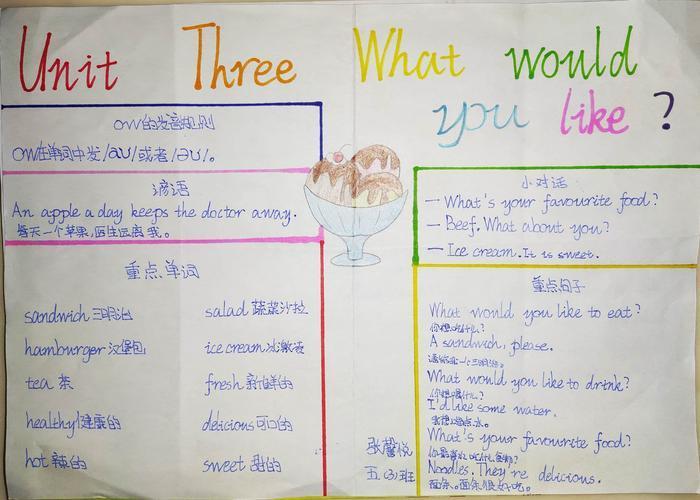 Unit Three What would you like?
ow的发音规则
ow在单词中发/aʊ/或者/əʊ/。
谚语
An apple a day keeps the doctor away.
每天一个苹果,医生远离我。
重点单词
sandwich 三明治
hamburger 汉堡包
tea 茶
healthy 健康的
hot 辣的
salad 蔬菜沙拉
ice cream 冰激凌
fresh 新鲜的
delicious 可口的
sweet 甜的
小对话
— What's your favourite food?
— Beef. What about you?
— Ice cream. It is sweet.
重点句子
What would you like to eat?
你想吃什么?
A sandwich, please.
请给我一个三明治。
What would you like to drink?
你想喝什么?
I'd like some water.
我想喝点水。
What's your favourite food?
你最喜欢吃什么食物?
Noodles. They're delicious.
面条。面条很好吃。
张馨悦
五(3)班